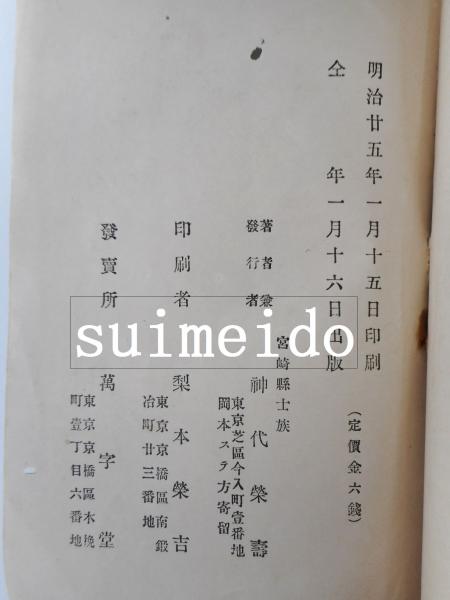 明治廿五年一月十五日印刷
仝 年一月十六日出版
(定價金六錢)
著者兼
發行者
宮崎縣士族
神代榮壽
東京芝區今入町壹番地
岡本ステ方寄留
印刷者 梨本榮吉
東京京橋區南鍛
冶町廿三番地
發賣所 萬字堂
東京京橋區木挽
町壹丁目六番地
suimeido